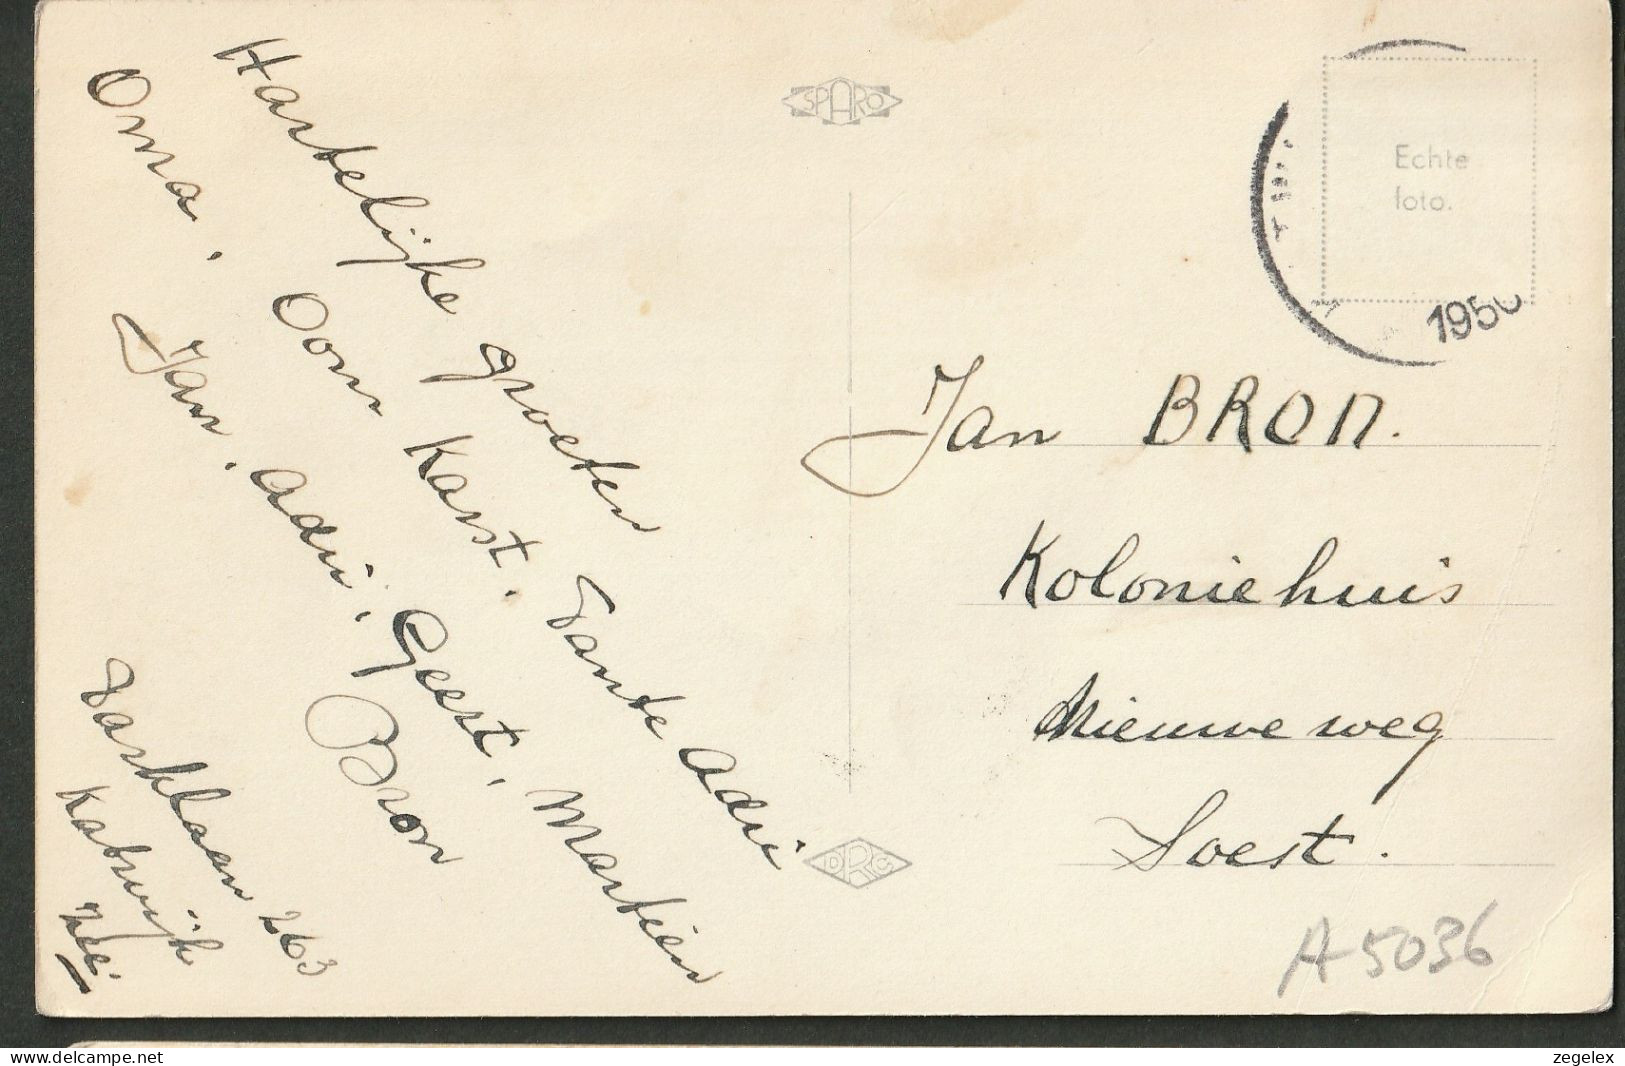 Hartelijke groeten
Oma, Oom Karst, Tante Adri
Jan, Adri, Geert, Martien
Bron
263
Katwijk
Zee
SPARO
DRC
Echte
foto.
1950
Jan BRON.
Koloniehuis
Nieuweweg
Soest.
A5036
delcampe.net
zegelex